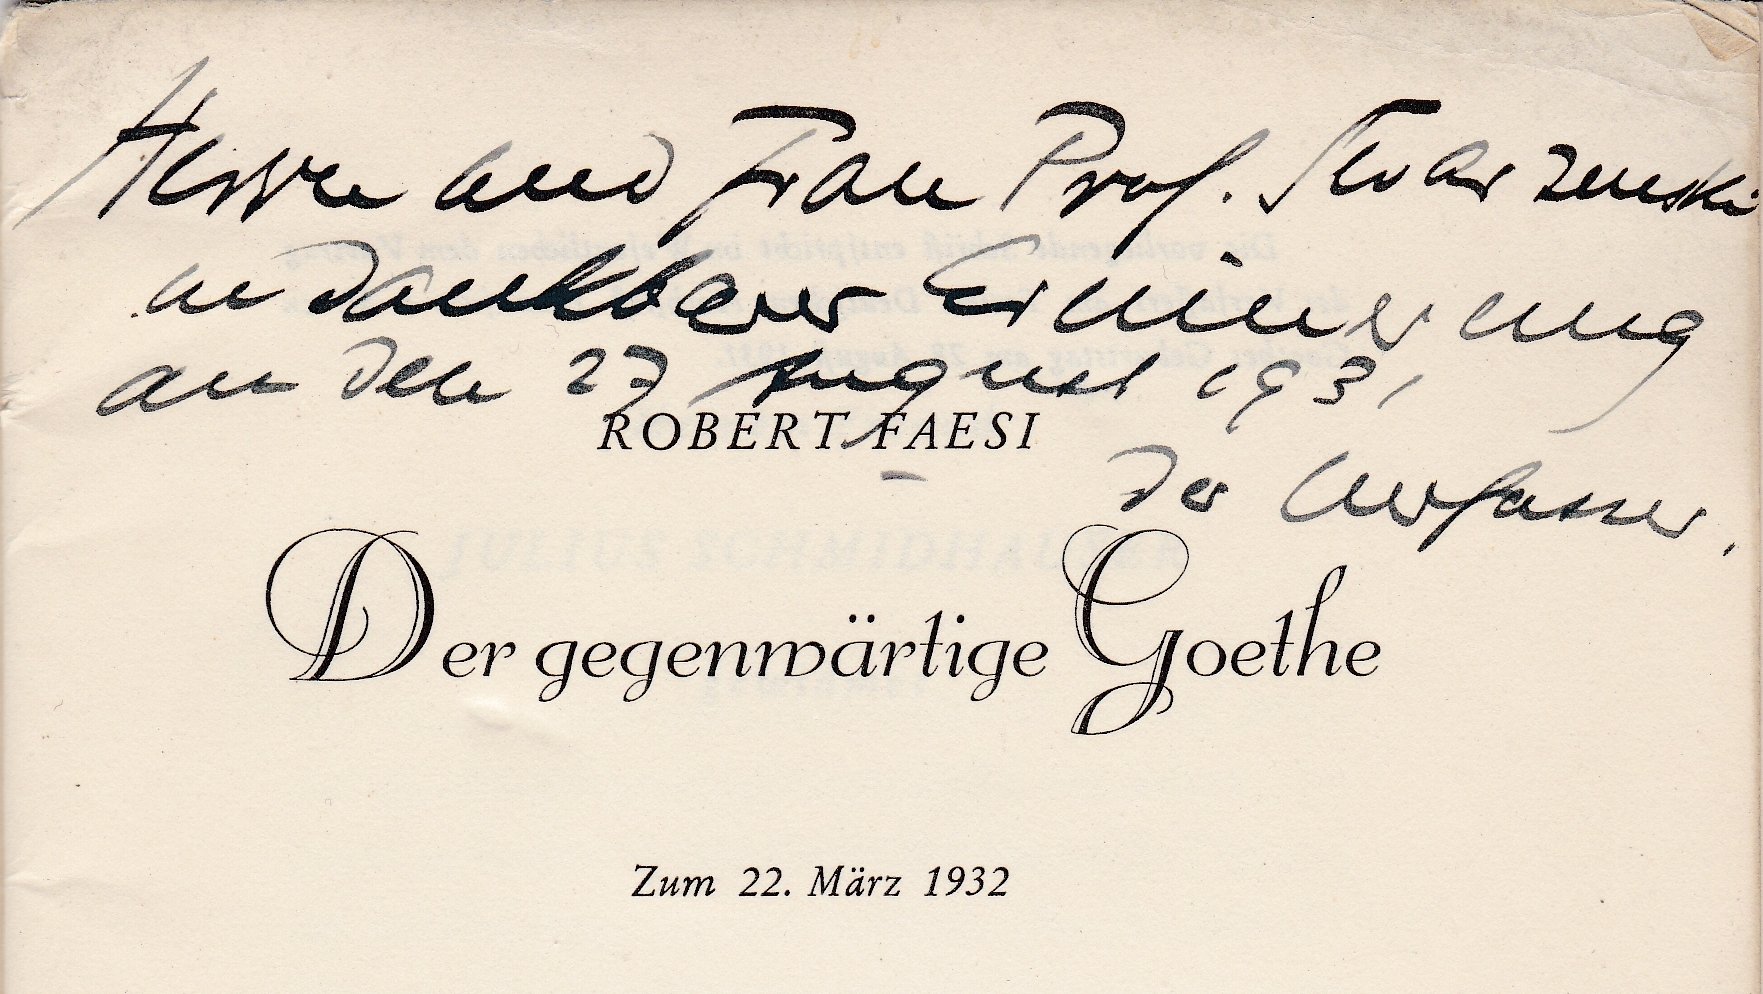 Herrn und Frau Prof. Swarzenski
in dankbarer Erinnerung
an den 27 August 1931
ROBERT FAESI
Der Verfasser.
Der gegenwärtige Goethe
Zum 22. März 1932